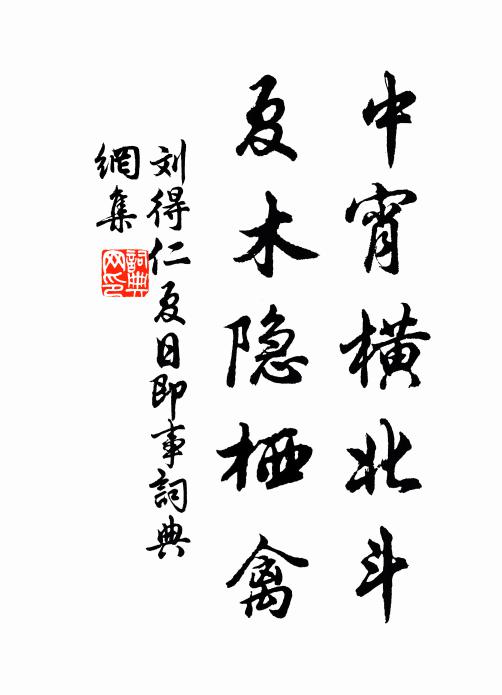 中宵横北斗
夏木隐栖禽
刘得仁夏日即事詞典
網集
詞典网印